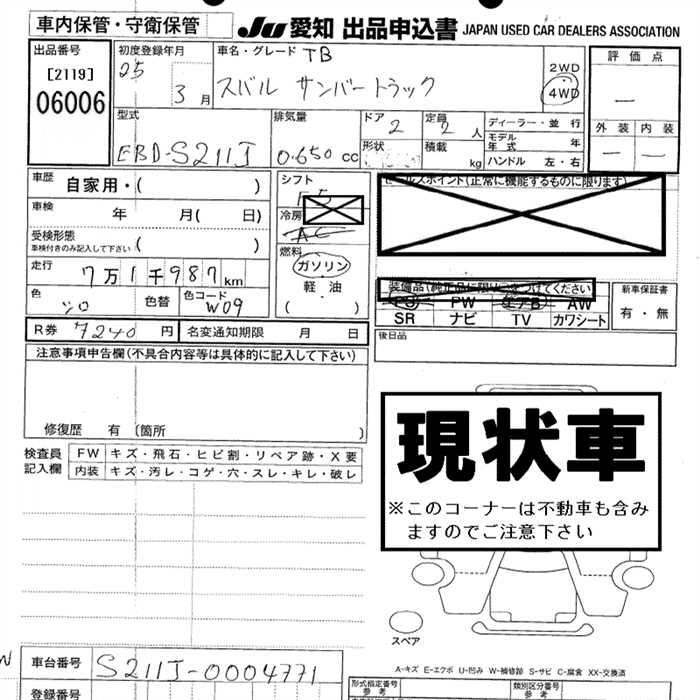 車内保管・守衛保管
JU 愛知 出品申込書 JAPAN USED CAR DEALERS ASSOCIATION
出品番号
[2119]
06006
初度登録年月
25
3 月
車名・グレード TB
スバル サンバートラック
2WD
4WD
評価点
—
外装 内装
— —
型式
EBD-S211J
排気量
0.650 cc
ドア 2
形状
定員 2 人
積載 kg
ディーラー・並行
モデル年式 年
ハンドル 左・右
車歴 自家用・( )
車検 年 月( 日)
受検形態
車検付きのみ記入して下さい ( )
走行 7万1千987km
色 シロ 色替 色コード W09
シフト
F5
冷房
AC
燃料
ガソリン
軽油
( )
セールスポイント(正常に機能するものに限ります)
装備品(純正品に限り○をつけてください
PS PW エアB AW
SR ナビ TV カワシート
新車保証書
有・無
R券 7240 円 名変通知期限 月 日
後日品
注意事項申告欄(不具合内容等は具体的に記入して下さい)
修復歴 有 (箇所 )
現状車
※このコーナーは不動車も含み
ますのでご注意下さい
検査員
記入欄
FW キズ・飛石・ヒビ割・リペア跡・X要
内装 キズ・汚レ・コゲ・穴・スレ・キレ・破レ
スペア
A-キズ E-エクボ U-凹み W-補修跡 S-サビ C-腐食 XX-交換済
車台番号 S211J-0004771
登録番号
形式指定番号
参考
類別区分番号
参考